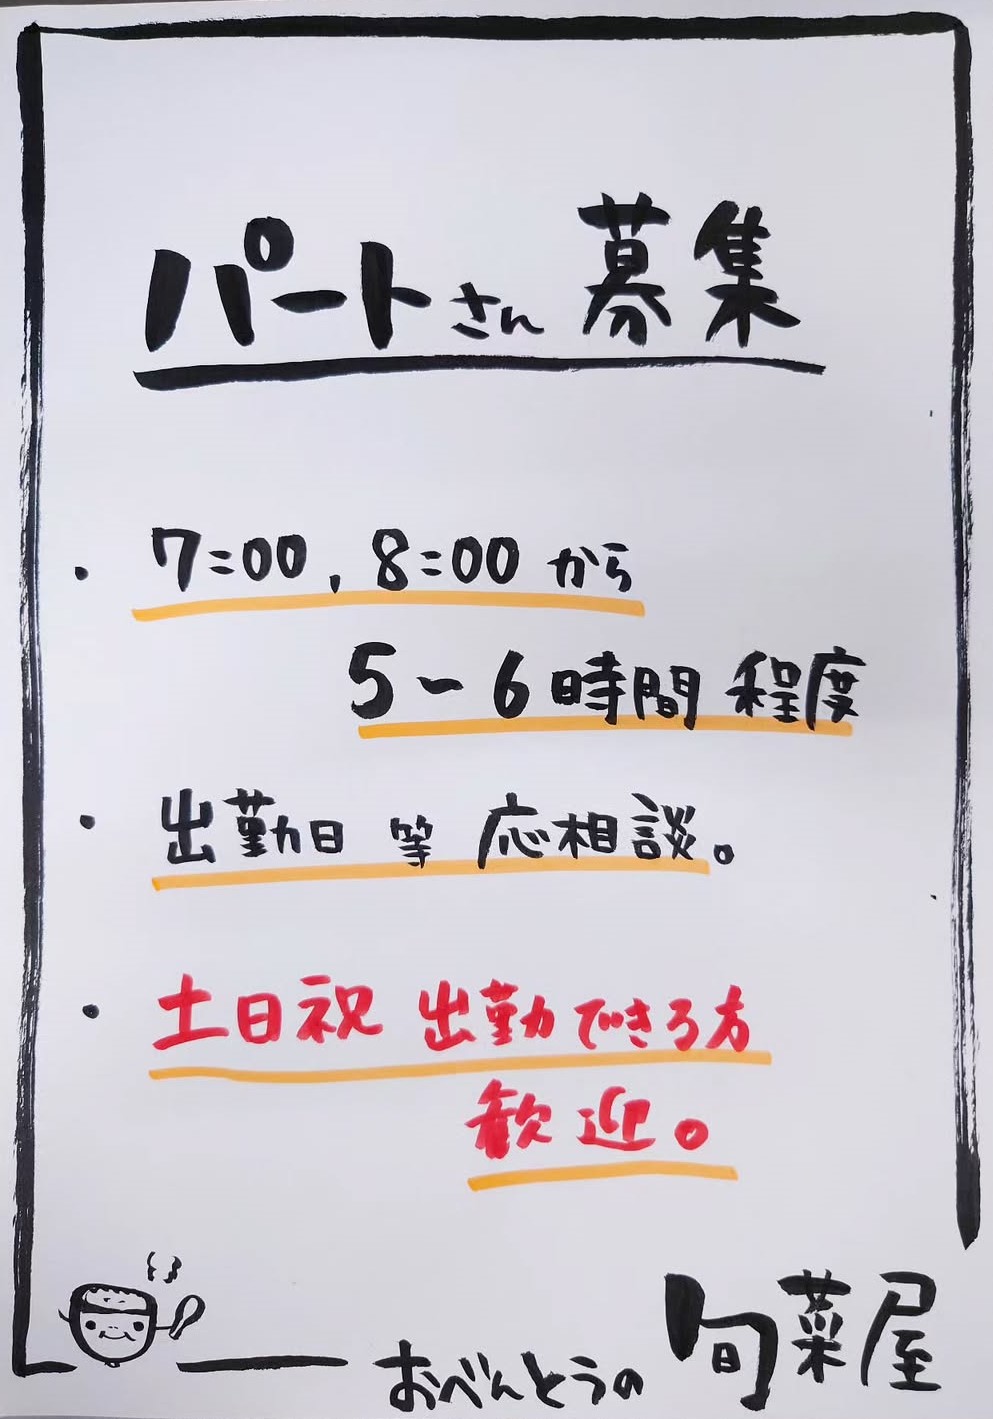 パートさん募集
・ 7:00, 8:00 から
5~6時間 程度
・ 出勤日 等 応相談。
・ 土日祝 出勤できる方
歓迎。
おべんとうの 旬菜屋